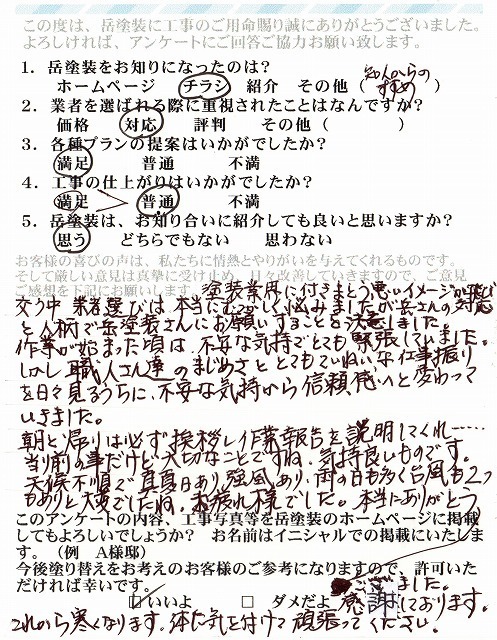 この度は、岳塗装に工事のご用命賜り誠にありがとうございました。
よろしければ、アンケートにご回答ご協力お願い致します。
1．岳塗装をお知りになったのは？
ホームページ　チラシ　紹介　その他（知人からのすすめ）
2．業者を選ばれる際に重視されたことはなんですか？
価格　対応　評判　その他（　　　）
3．各種プランの提案はいかがでしたか？
満足　普通　不満
4．工事の仕上がりはいかがでしたか？
満足　普通　不満
5．岳塗装は、お知り合いに紹介しても良いと思いますか？
思う　どちらでもない　思わない
お客様の喜びの声は、私たちに情熱とやりがいを与えてくれるものです。
そして厳しい意見は真摯に受け止め、日々改善していきますので、ご意見
ご感想を下記にお願いします。塗装業界に付きまとう悪いイメージが飛び
交う中 業者選びは本当にむづかしく悩みましたが岳さんの対応
と人柄で岳塗装さんにお願いすることを決意しました。
作業が始まった頃は、不安な気持でとても緊張していました。
しかし職人さん達のまじめさととてもていねいな仕事振り
を日々見るうちに、不安な気持から信頼感へと変わって
いきました。
朝と帰りは必ず挨拶し作業報告を説明してくれ……
当り前の事だけど大切なことですね。気持良いものです。
天候不順で真夏日あり、強風あり、雨の日も多く台風も2つ
もありと大変でしたね。お疲れ様でした。本当にありがとう
このアンケートの内容、工事写真等を岳塗装のホームページに掲載
してもよろしいでしょうか？　お名前はイニシャルでの掲載にいたしま
す。（例　A様邸）
今後塗り替えをお考えのお客様のご参考になりますので、許可いた
だければ幸いです。
ございました。
☑いいよ　□ ダメだよ　感謝しております。
これから寒くなります。体に気を付けて頑張ってください。